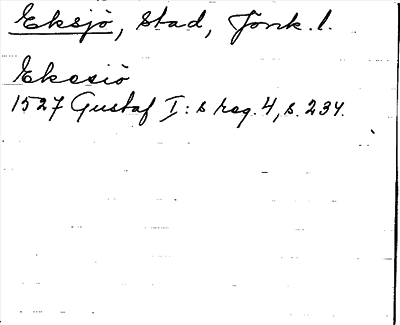 Eksjö, Stad, Jönk. l.
Ekesiö
1527 Gustaf I:s reg. 4, s. 234.